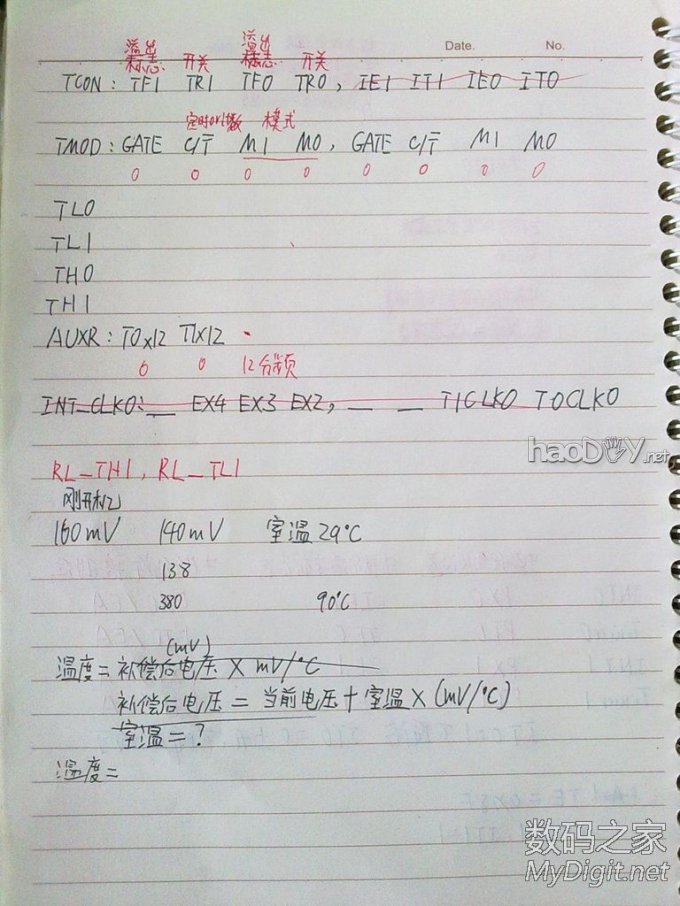 Date. No.
溢出 溢出
标志 开关 标志 开关
TCON: TF1 TR1 TF0 TR0, IE1 IT1 IE0 IT0
定时or计数 模式
TMOD: GATE C/T̅ M1 M0, GATE C/T̅ M1 M0
0 0 0 0 0 0 0 0
TL0
TL1
TH0
TH1
AUXR: T0x12 T1x12
0 0 12分频
INT_CLKO: __ EX4 EX3 EX2, __ __ T1CLKO T0CLKO
haoDIY.net
RL_TH1, RL_TL1
刚开机
160mV 140mV 室温29℃
138
380 90℃
(mV)
温度=补偿后电压×mV/℃
补偿后电压=当前电压+室温×(mV/℃)
室温=?
温度=
数码之家
MyDigit.net